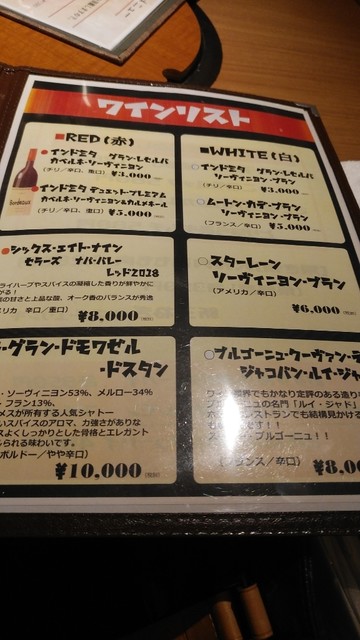 ワインリスト
■RED(赤)
●インドミタ グラン・レセルバ
カベルネ・ソーヴィニヨン
(チリ/辛口、重口) ¥3,000
●インドミタ デュエット・プレミアム
カベルネ・ソーヴィニヨン&カルメネール
(チリ/辛口、重口) ¥5,000
Bordeaux
●シックス・エイト・ナイン
セラーズ ナパ・バレー
レッド2018
ライハーブやスパイスの凝縮した香りが鮮やかに
がる!
の甘さと上品な酸、オーク香のバランスが秀逸
リカ 辛口/重口)
¥8,000(税別)
・グラン・ドモワゼル
・ドスタン
・ソーヴィニヨン53%、メルロー34%
・フラン13%、
メスが所有する人気シャトー
いスパイスのアロマ、力強さがありな
スよくしっかりとした骨格とエレガント
られる味わいです。
ボルドー/やや辛口)
¥10,000(税別)
■WHITE(白)
○インドミタ グラン・レセルバ
ソーヴィニヨン・ブラン
(チリ/辛口) ¥3,000
○ムートン・カデ・ブラン
ソーヴィニヨン・ブラン
(フランス/辛口) ¥5,000
○スターレーン
ソーヴィニヨン・ブラン
(アメリカ/辛口)
¥6,000(税別)
○ブルゴーニュ・クーヴァン・デ
ジャコバン・ルイ・ジャ
ワイン世界でもかなり定評のある造り
ブルゴーニュの名門「ルイ・ジャド」
レストランでも結構見かける
です!!
・ブルゴーニュ!!
(フランス/辛口)
¥8,00